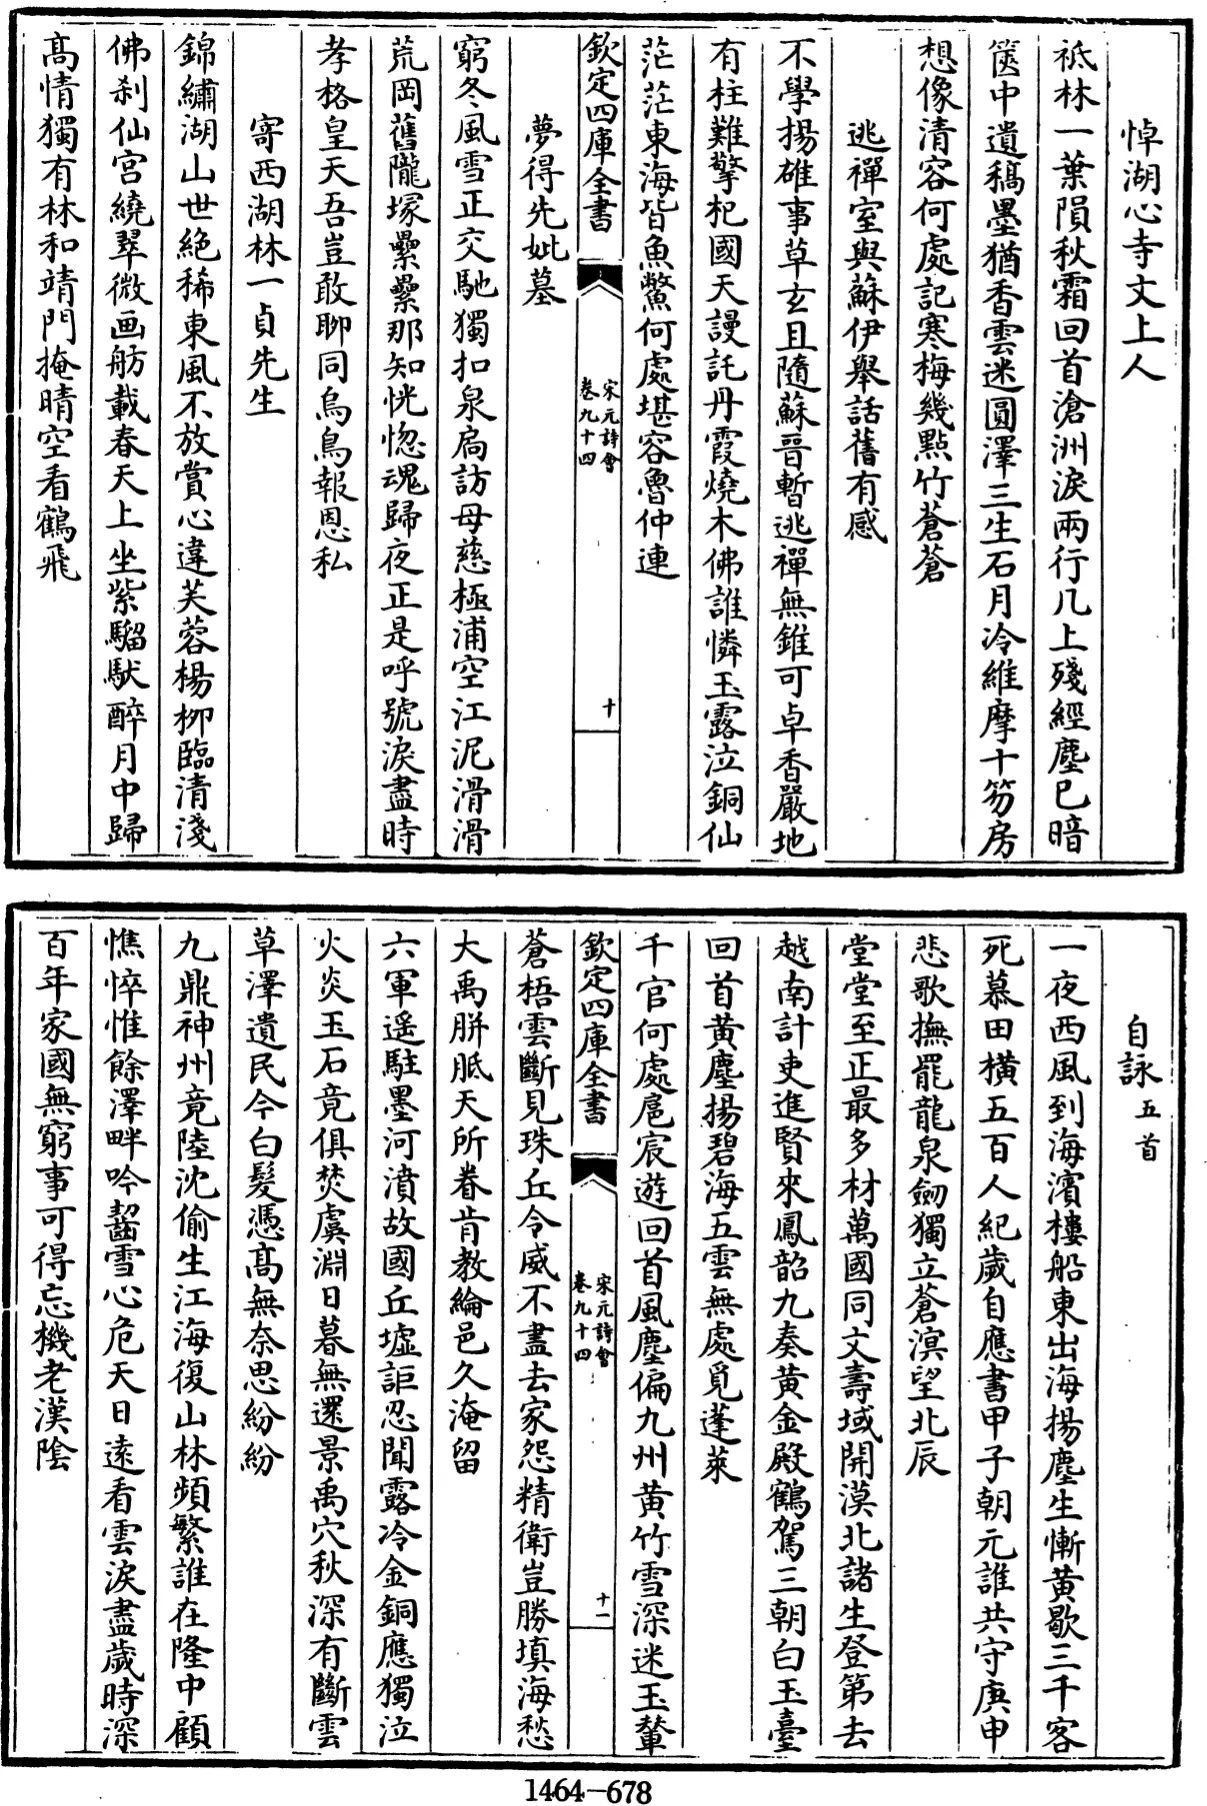 悼湖心寺文上人
祗林一葉隕秋霜回首滄洲淚兩行几上殘經塵已暗
篋中遺稿墨猶香雲迷圓澤三生石月冷維摩十笏房
想像清容何處記寒梅幾點竹蒼蒼
逃禪室與蘇伊舉話舊有感
不學揚雄事草玄且隨蘇晉暫逃禪無錐可卓香嚴地
有柱難擎杞國天謾託丹霞燒木佛誰憐玉露泣銅仙
茫茫東海皆魚鱉何處堪容魯仲連
欽定四庫全書
宋元詩會
卷九十四
十
夢得先妣墓
窮冬風雪正交馳獨扣泉扃訪母慈極浦空江泥滑滑
荒岡舊隴塚纍纍那知恍惚魂歸夜正是呼號淚盡時
孝格皇天吾豈敢聊同烏鳥報恩私
寄西湖林一貞先生
錦繡湖山世絕稀東風不放賞心違芙蓉楊柳臨清淺
佛剎仙宮繞翠微画舫載春天上坐紫騮馱醉月中歸
高情獨有林和靖門掩晴空看鶴飛
自詠五首
一夜西風到海濱樓船東出海揚塵生慚黃歇三千客
死慕田橫五百人紀歲自應書甲子朝元誰共守庚申
悲歌撫罷龍泉劒獨立蒼溟望北辰
堂堂至正最多材萬國同文壽域開漠北諸生登第去
越南計吏進賢來鳳韶九奏黃金殿鶴駕三朝白玉臺
回首黃塵揚碧海五雲無處覓蓬萊
千官何處扈宸遊回首風塵偏九州黃竹雪深迷玉輦
欽定四庫全書
宋元詩會
卷九十四
十一
蒼梧雲斷見珠丘令威不盡去家怨精衛豈勝填海愁
大禹胼胝天所眷肯教綸邑久淹留
六軍遥駐墨河濆故國丘墟詎忍聞露冷金銅應獨泣
火炎玉石竟俱焚虞淵日暮無還景禹穴秋深有斷雲
草澤遺民今白髮憑高無奈思紛紛
九鼎神州竟陸沈偷生江海復山林頻繁誰在隆中顧
憔悴惟餘澤畔吟齧雪心危天日遠看雲淚盡歲時深
百年家國無窮事可得忘機老漢陰
1464-678